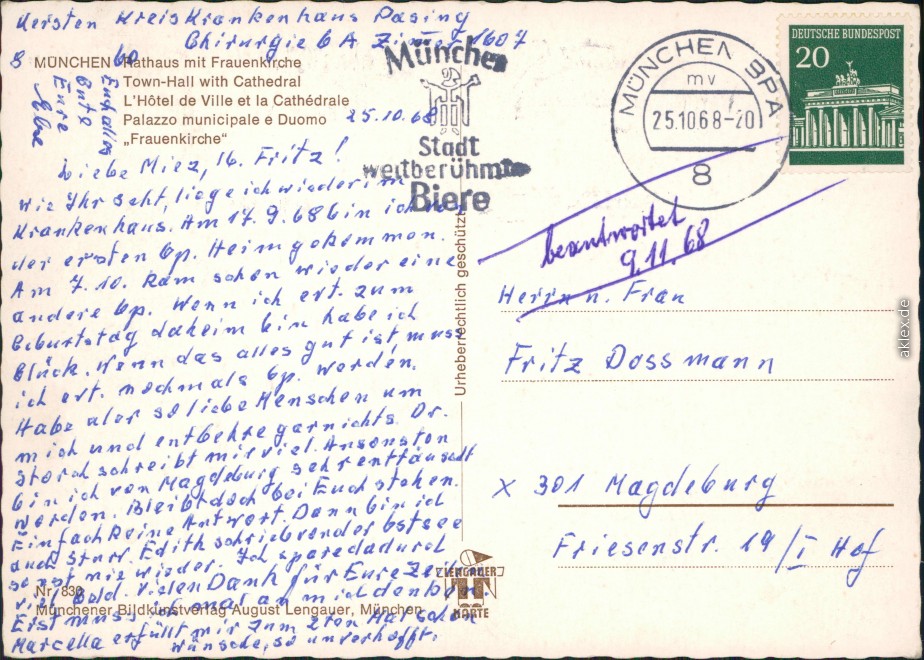 Kersten Kreiskrankenhaus Pasing
Chirurgie 6 A Zimmer 1607
8 MÜNCHEN 60
Rathaus mit Frauenkirche
Town-Hall with Cathedral
L'Hôtel de Ville et la Cathédrale
Palazzo municipale e Duomo
„Frauenkirche“
25.10.68
Euch alles
Gute
Eure
München
Stadt
weltberühmter
Biere
MÜNCHEN BPA
mv
25.10.68-20
8
DEUTSCHE BUNDESPOST
20
Liebe Miez, lb. Fritz!
Wie Ihr seht, liege ich wieder im
Krankenhaus. Am 17.9.68 bin ich von
der ersten Op. Heimgekommen.
Am 7.10. kam schon wieder eine
andere Op. Wenn ich evt. zum
Geburtstag daheim bin habe ich
Glück. Wenn das alles gut ist, muss
ich evt. nochmals op. werden.
Habe aber so liebe Menschen um
mich und entbehre garnichts. Dr.
Storch schreibt mir viel. Ansonsten
bin ich von Magdeburg sehr enttäuscht
worden. Bleibt doch bei Euch stehen.
Einfach keine Antwort. Dann bin ich
auch Stur. Edith schrieb von der Ostsee
sonst nie wieder. Ich spare dadurch
viel Geld. Vielen Dank für Eure Zeilen
Erst muss ich mal an mich denken
Marcella erfüllt mir zum 2ten Mal schon
Wünsche, so unverhofft.
Nr. 830
Münchener Bildkunstverlag August Lengauer, München
Urheberrechtlich geschützt
LENGAUER
KARTE
beantwortet
9.11.68
Herrn u. Frau
Fritz Dossmann
X 301 Magdeburg
Friesenstr. 19/I Hof
aklex.de